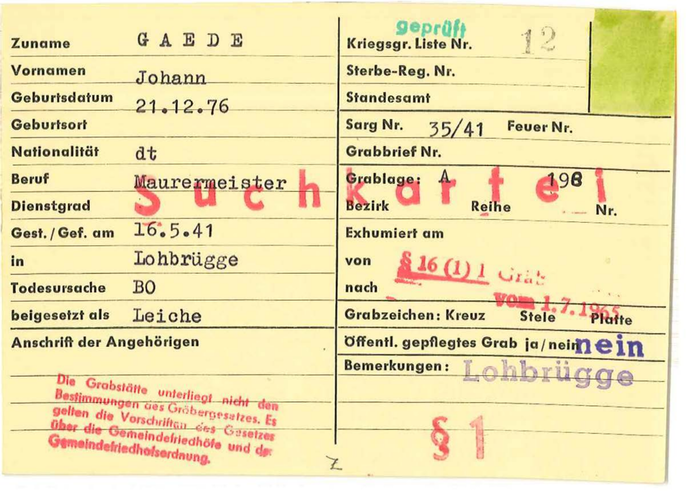 Zuname G A E D E
Vornamen Johann
Geburtsdatum 21.12.76
Geburtsort
Nationalität dt
Beruf Maurermeister
Dienstgrad
Gest./Gef. am 16.5.41
in Lohbrügge
Todesursache BO
beigesetzt als Leiche
Anschrift der Angehörigen
Die Grabstätte unterliegt nicht den
Bestimmungen des Gräbergesetzes. Es
gelten die Vorschriften des Gesetzes
über die Gemeindefriedhöfe und der
Gemeindefriedhofsordnung.
Z
geprüft
Kriegsgr. Liste Nr. 12
Sterbe-Reg. Nr.
Standesamt
Sarg Nr. 35/41 Feuer Nr.
Grabbrief Nr.
Grablage: A 198
Suchkartei
Bezirk Reihe Nr.
Exhumiert am
von § 16 (1) 1
nach vom 1.7.1965
Grabzeichen: Kreuz Stele Platte
Öffentl. gepflegtes Grab ja/nein nein
Bemerkungen: Lohbrügge
§ 1